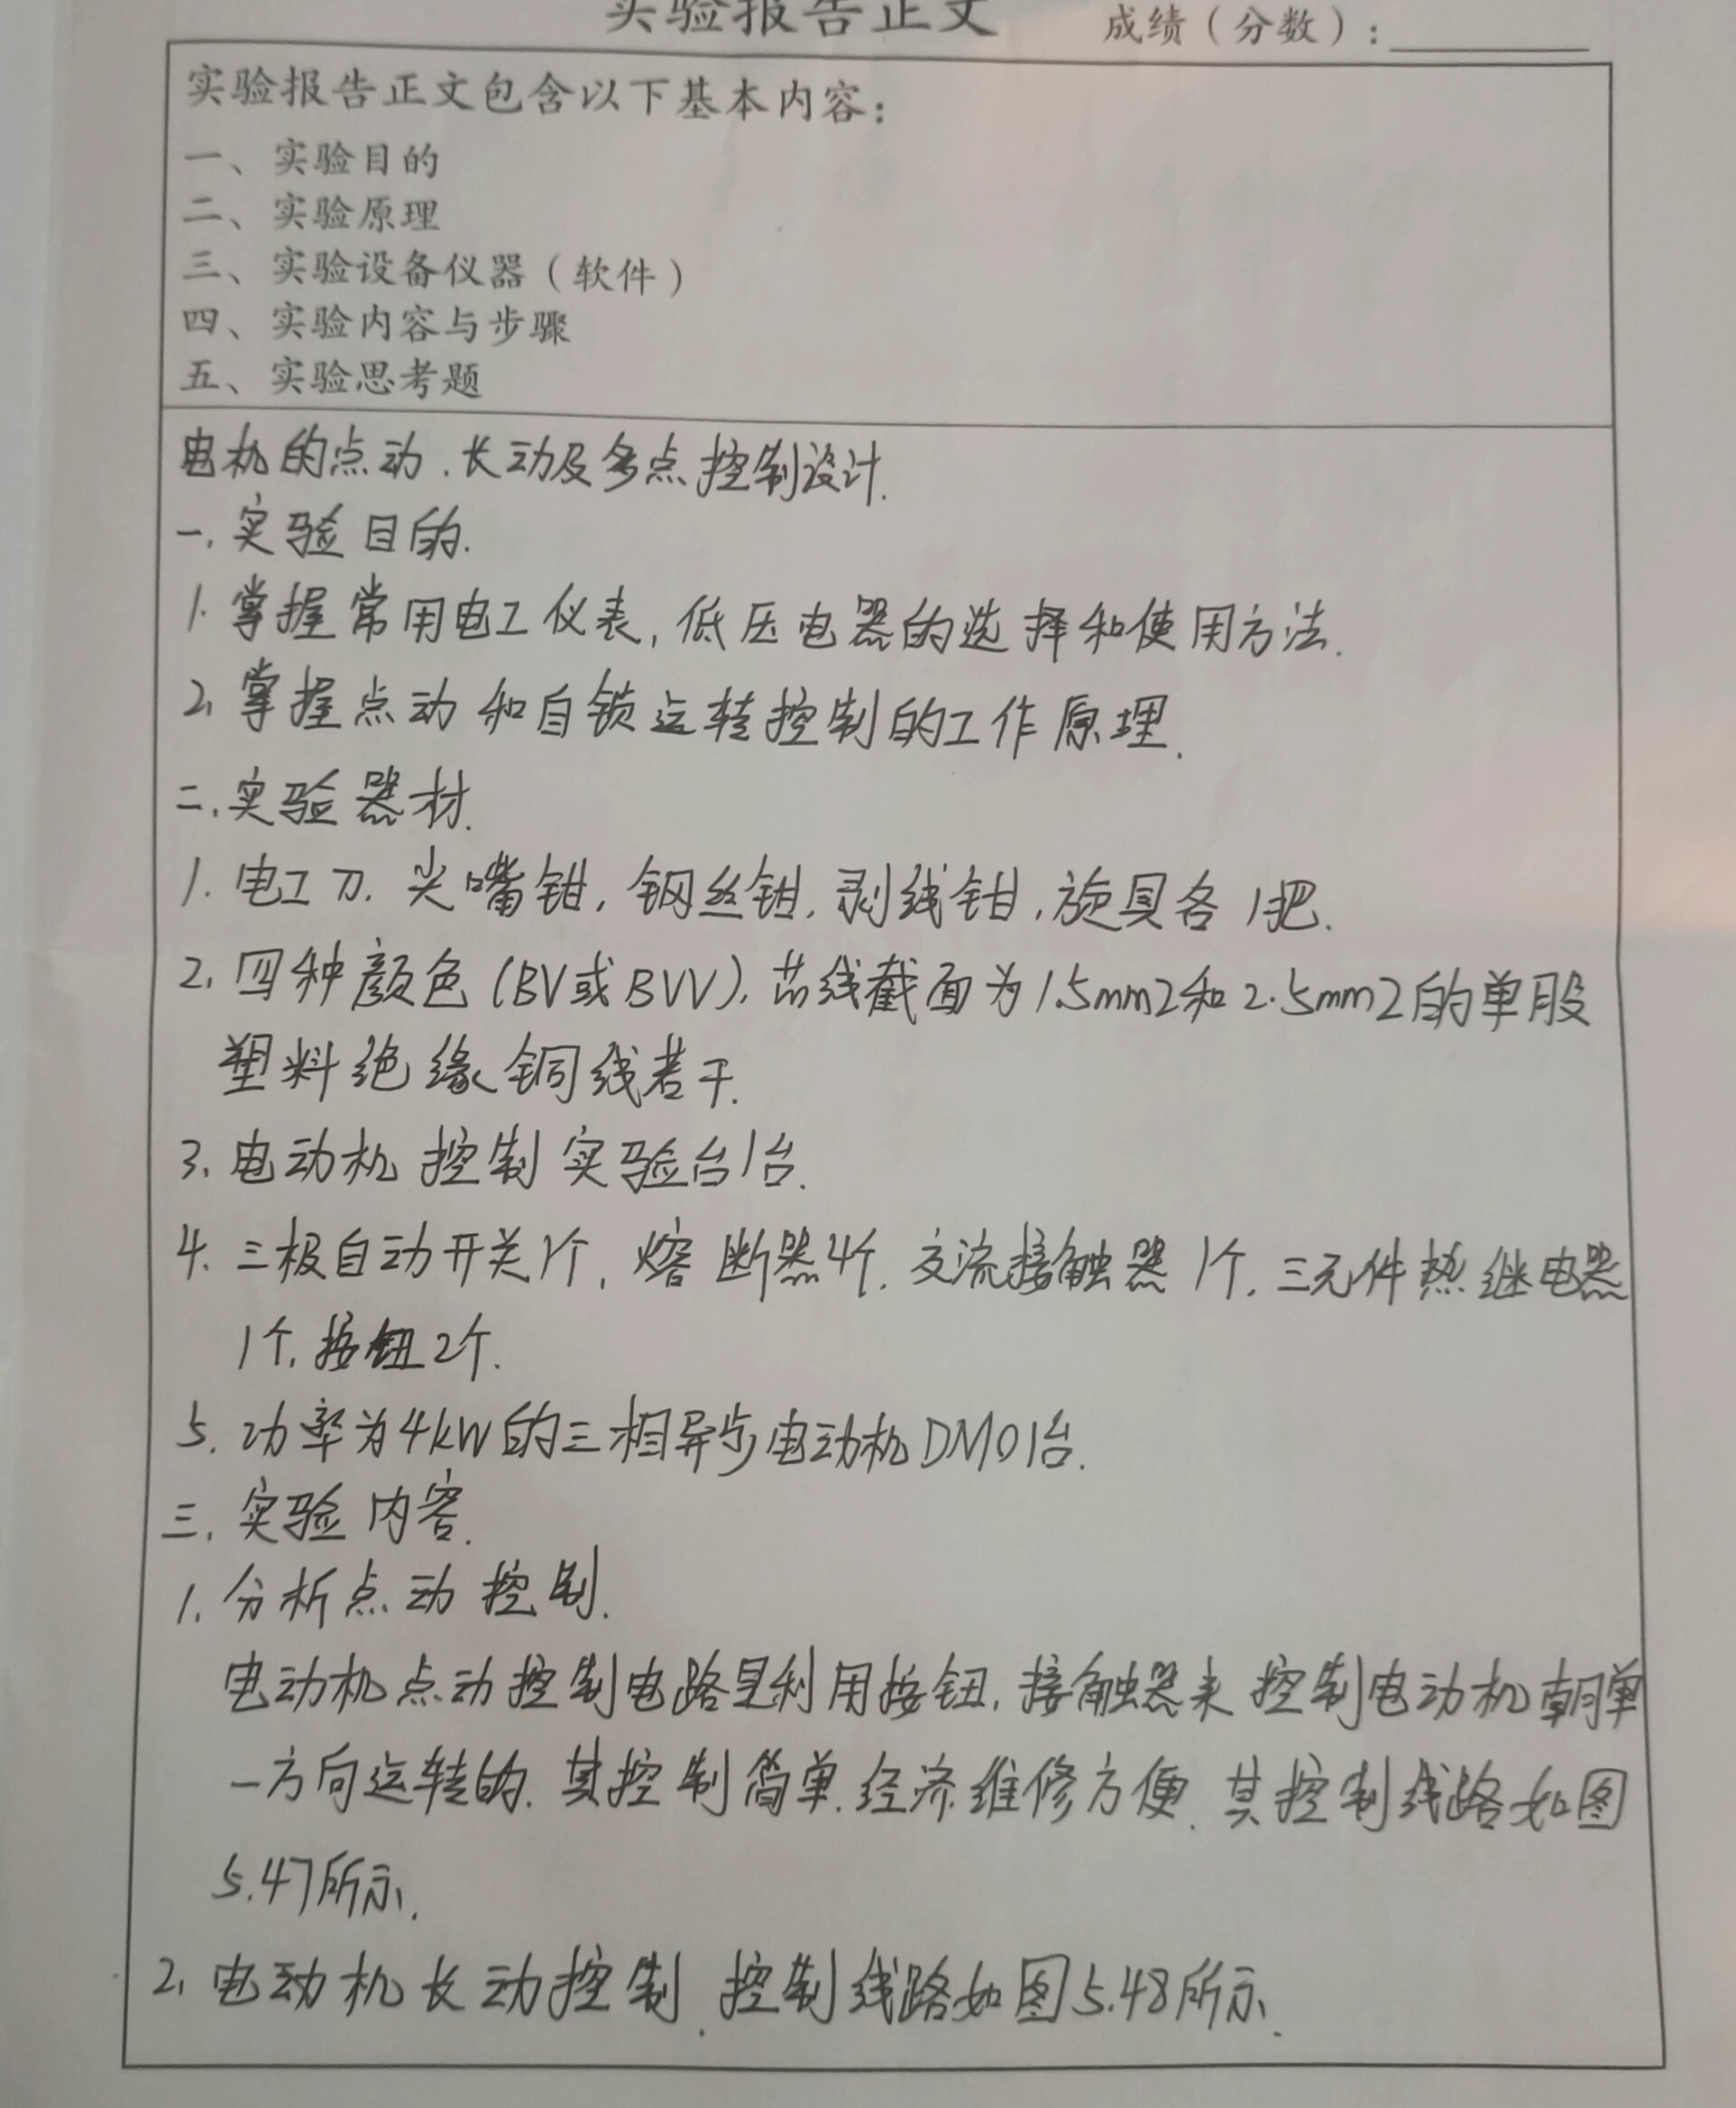 实验报告正文 成绩（分数）：
实验报告正文包含以下基本内容：
一、实验目的
二、实验原理
三、实验设备仪器（软件）
四、实验内容与步骤
五、实验思考题
电机的点动、长动及多点控制设计.
一、实验目的.
1. 掌握常用电工仪表,低压电器的选择和使用方法.
2. 掌握点动和自锁运转控制的工作原理.
二、实验器材.
1. 电工刀、尖嘴钳,钢丝钳,剥线钳,旋具各1把.
2. 四种颜色(BV或BVV),芯线截面为1.5mm2和2.5mm2的单股
塑料绝缘铜线若干.
3. 电动机控制实验台1台.
4. 三极自动开关1个,熔断器4个,交流接触器1个,三元件热继电器
1个,按钮2个.
5. 功率为4kW的三相异步电动机DM01台.
三、实验内容.
1. 分析点动控制.
电动机点动控制电路是利用按钮,接触器来控制电动机朝单
一方向运转的.其控制简单.经济维修方便.其控制线路如图
5.47所示.
2. 电动机长动控制.控制线路如图5.48所示.